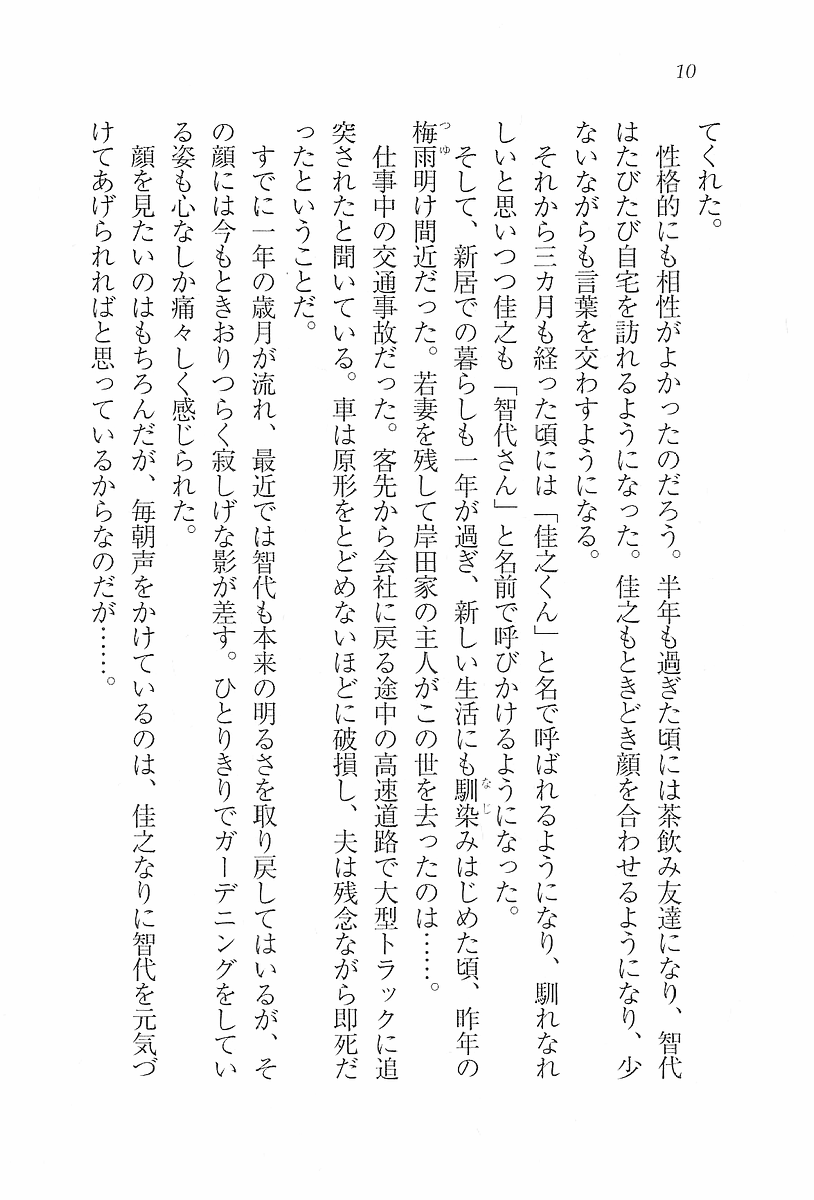 10
てくれた。
　性格的にも相性がよかったのだろう。半年も過ぎた頃には茶飲み友達になり、智代
はたびたび自宅を訪れるようになった。佳之もときどき顔を合わせるようになり、少
ないながらも言葉を交わすようになる。
　それから三カ月も経った頃には「佳之くん」と名で呼ばれるようになり、馴れなれ
しいと思いつつ佳之も「智代さん」と名前で呼びかけるようになった。
　そして、新居での暮らしも一年が過ぎ、新しい生活にも馴染みはじめた頃、昨年の
梅雨明け間近だった。若妻を残して岸田家の主人がこの世を去ったのは……。
　仕事中の交通事故だった。客先から会社に戻る途中の高速道路で大型トラックに追
突されたと聞いている。車は原形をとどめないほどに破損し、夫は残念ながら即死だ
ったということだ。
　すでに一年の歳月が流れ、最近では智代も本来の明るさを取り戻してはいるが、そ
の顔には今もときおりつらく寂しげな影が差す。ひとりきりでガーデニングをしてい
る姿も心なしか痛々しく感じられた。
　顔を見たいのはもちろんだが、毎朝声をかけているのは、佳之なりに智代を元気づ
けてあげられればと思っているからなのだが……。